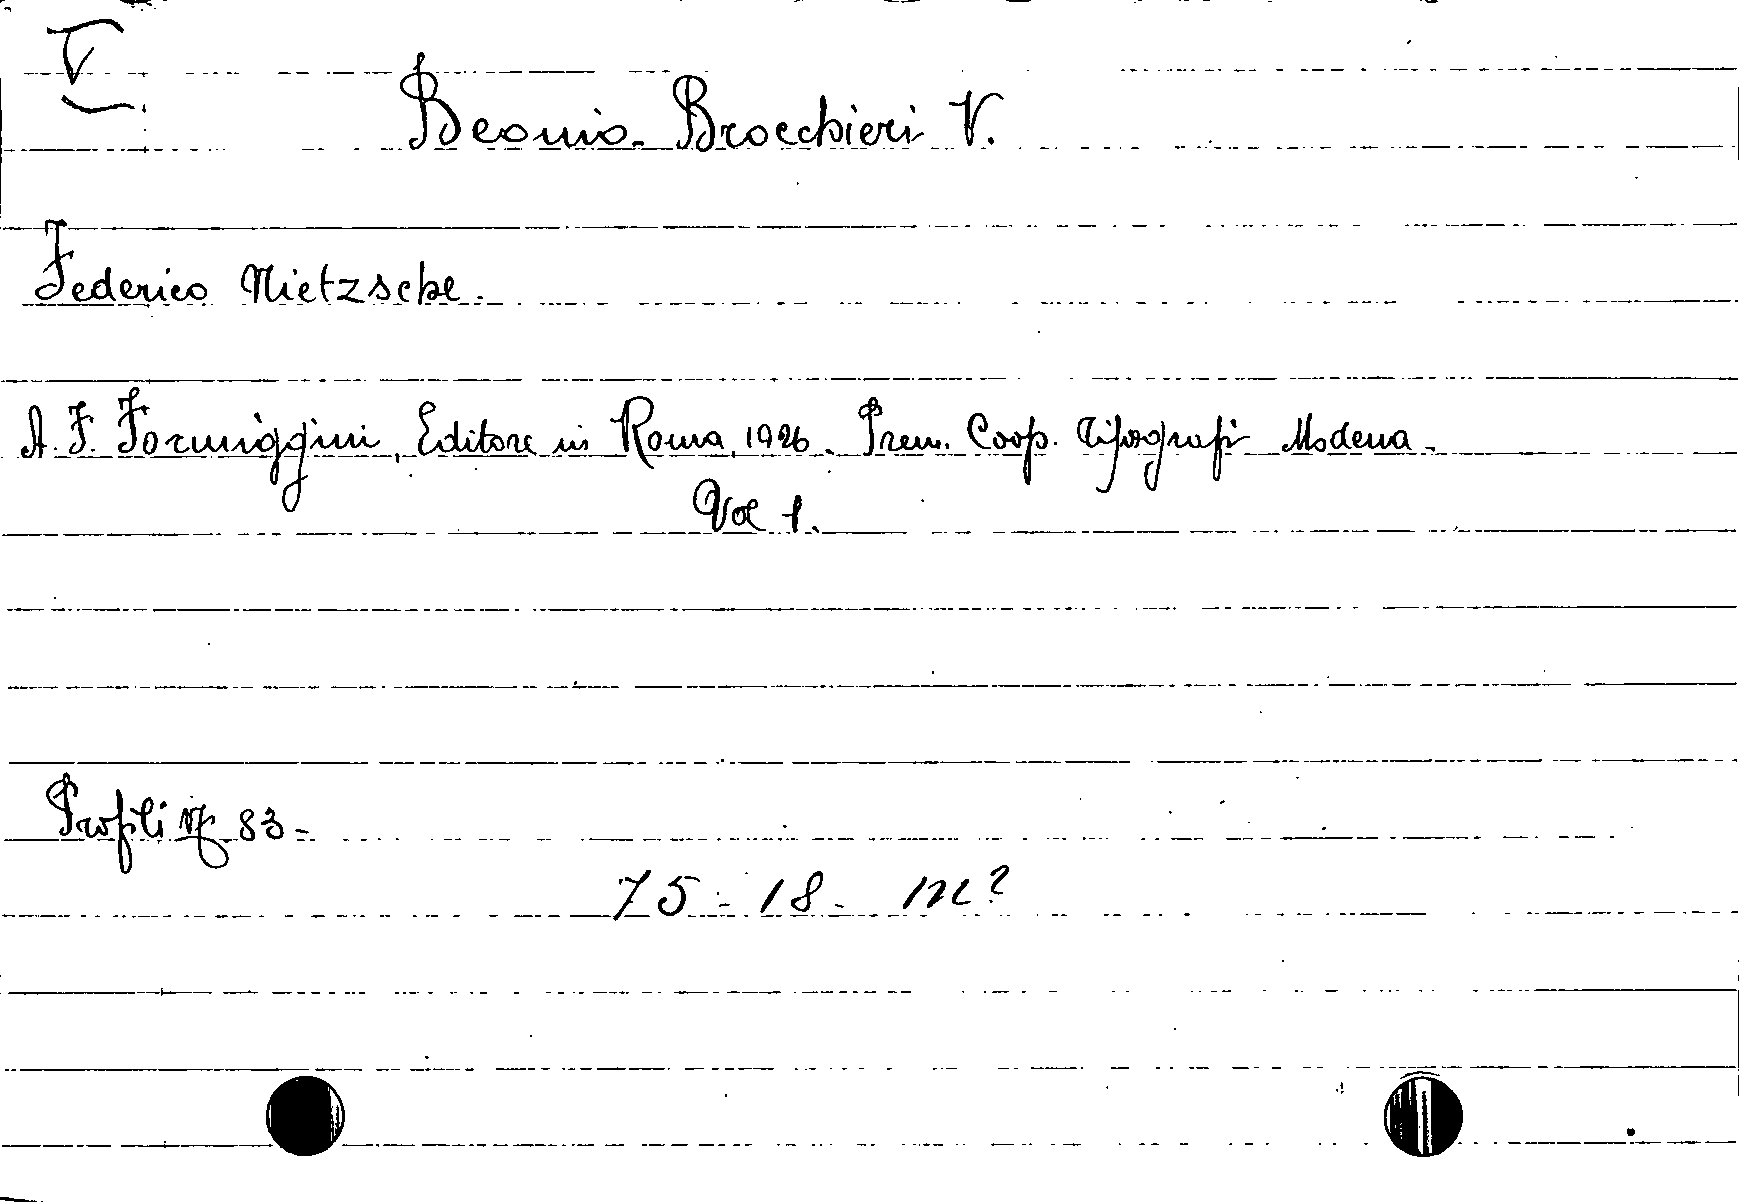 V
Beonio-Brocchieri V.
Federico Nietzsche.
A. F. Formiggini, Editore in Roma, 1926. Prem. Coop. Tipografi Modena.
Vol 1.
Profili Nº 83-
75-18-